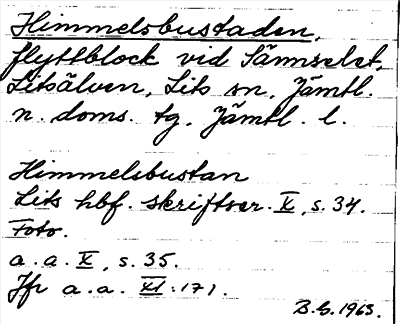 Himmelsbustaden,
flyttblock vid Sännselet,
Litsälven, Lits sn, Jämtl.
n. doms. tg, Jämtl. l.
Himmelsbustan
Lits hbf. skriftser. X, s. 34.
Foto.
a. a. X, s. 35.
Jfr a. a. XI:171.
B.G. 1963.